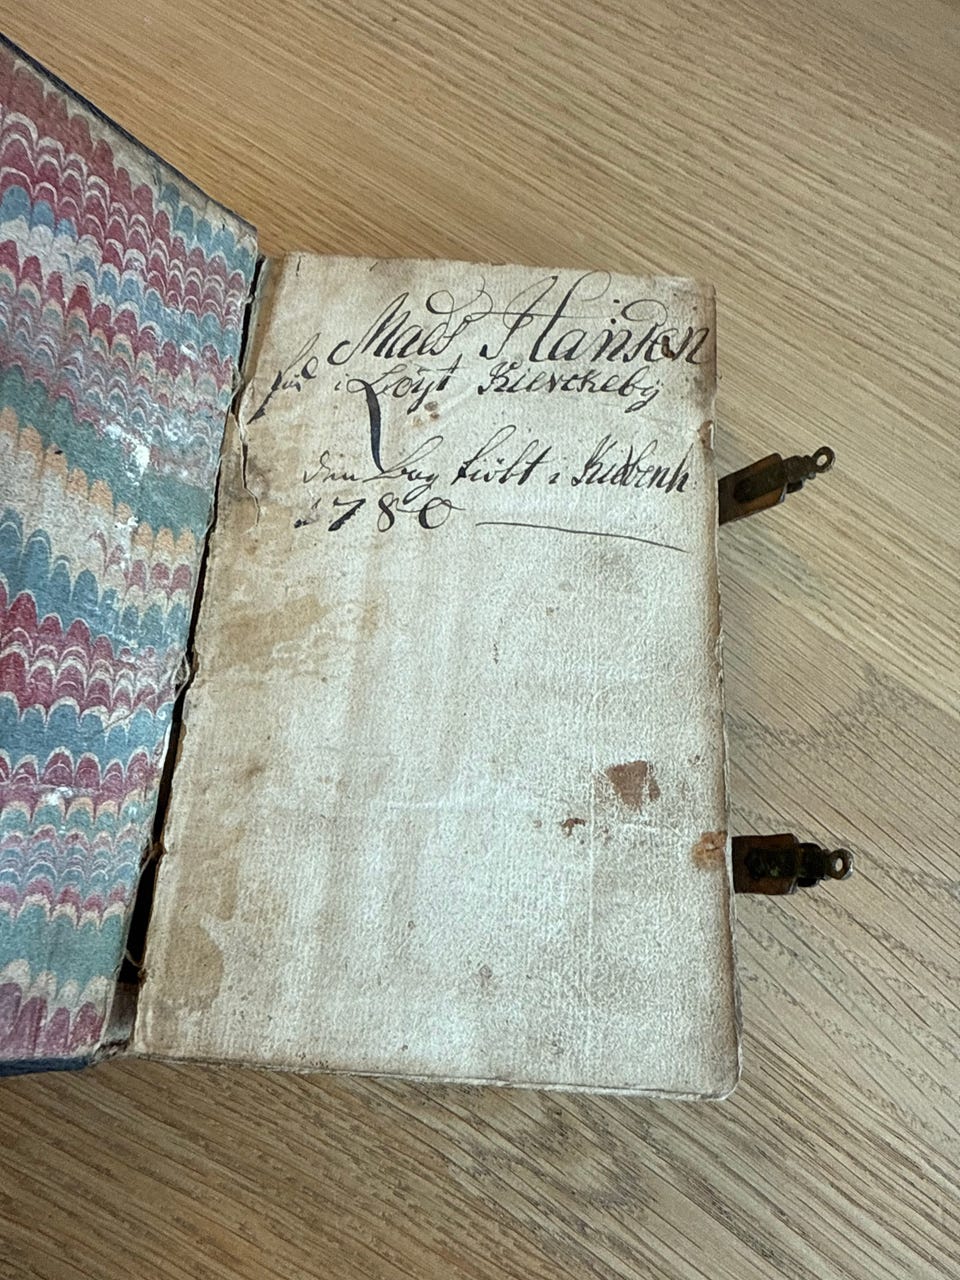 Mads Hansen
i Løÿt Kierckebÿ
den Bog kiøbt i Kiøbenh
1780